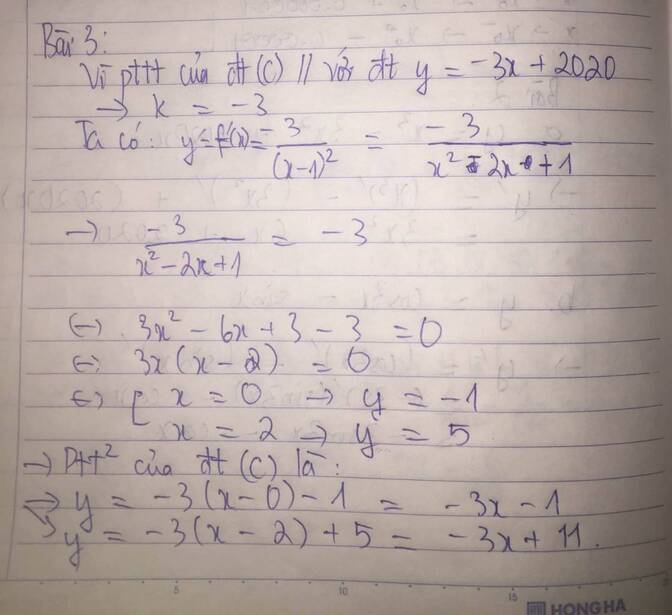 Bài 3:
Vì pttt của đt (C) // với đt y = -3x + 2020
→ k = -3
Ta có: y' = f'(x) = -3/(x-1)² = -3/(x² - 2x + 1)
→ -3/(x² - 2x + 1) = -3
(→) 3x² - 6x + 3 - 3 = 0
(→) 3x(x - 2) = 0
(→) [ x = 0 → y = -1
x = 2 → y = 5
→ Ptt² của đt (C) là:
⇒ y = -3(x-0) - 1 = -3x - 1
↘ y = -3(x - 2) + 5 = -3x + 11.
5 10 15
HONG HA